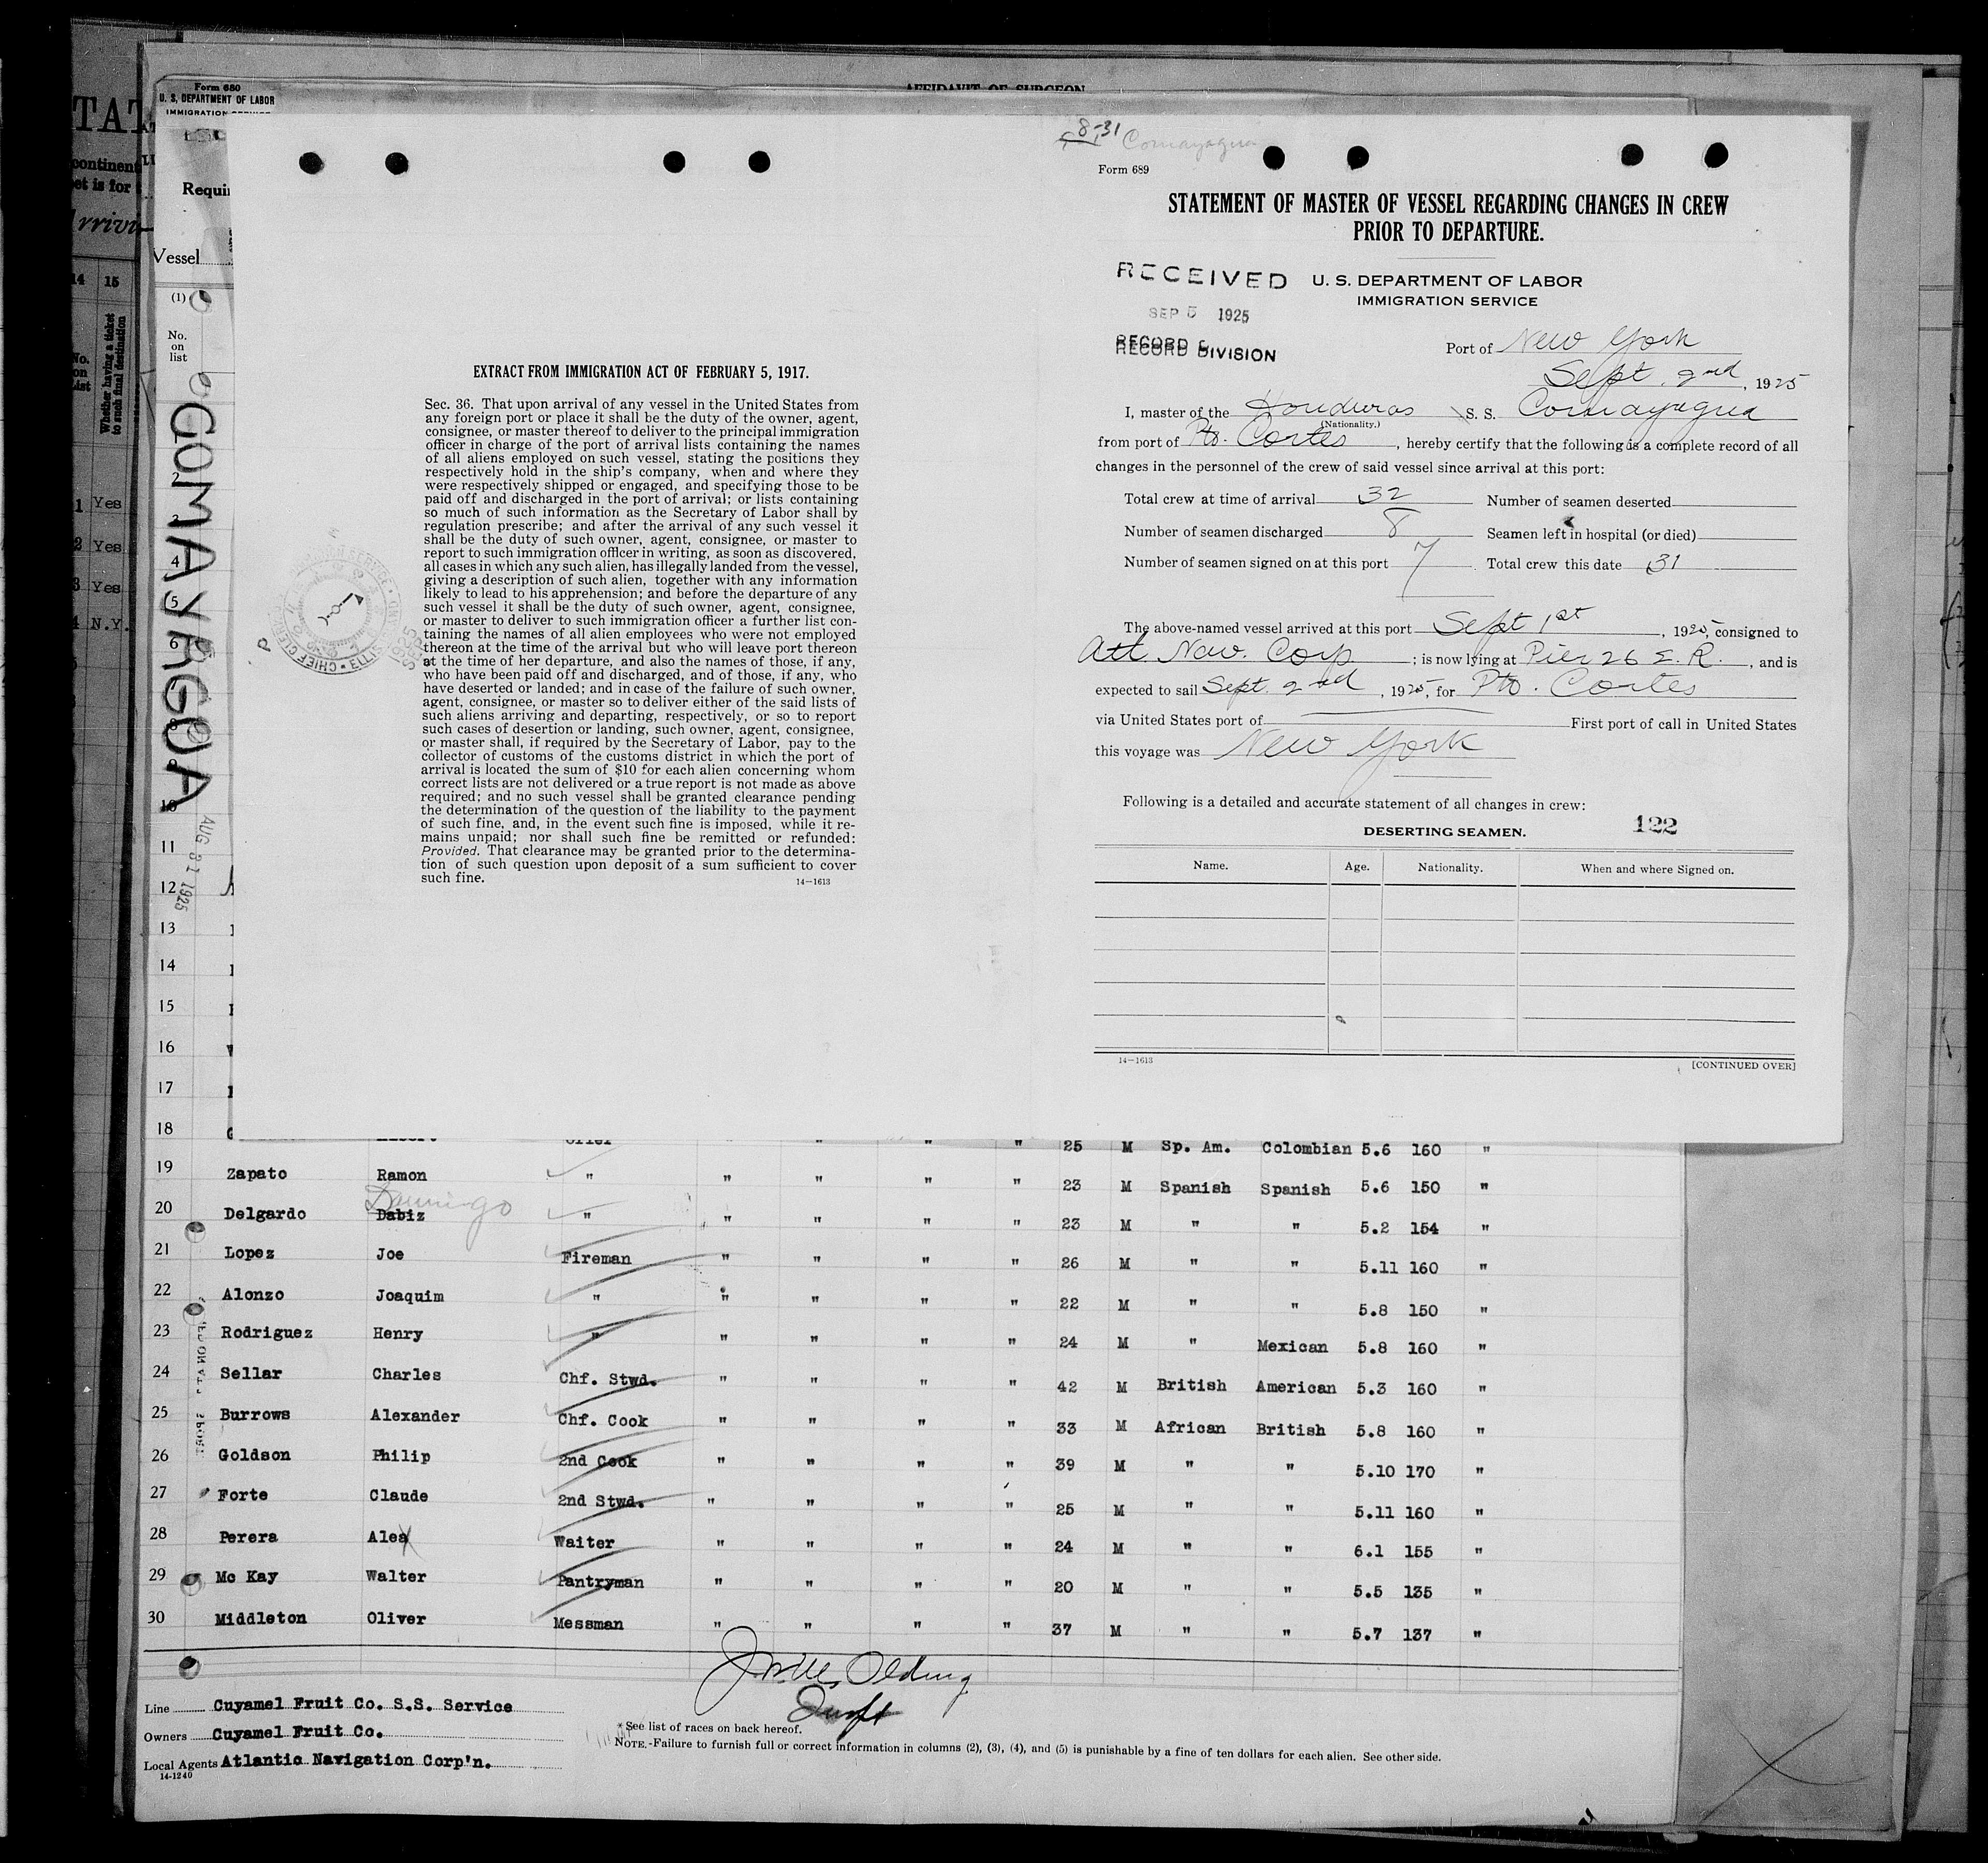 AFFIDAVIT OF SURGEON
Form 680
U. S. DEPARTMENT OF LABOR
IMMIGRATION SERVICE
TAT
continent
et is for
rrivi
Requi
Vessel
14 15
Whether having a ticket
to such final destination
No.
on
List
1 Yes
2 Yes
3 Yes
4 N.Y.
(1)
No.
on
list
COMAYAGUA
AUG 31 1925
2
3
4
5
6
8
9
10
11
12
13
14
15
16
17
EXTRACT FROM IMMIGRATION ACT OF FEBRUARY 5, 1917.
Sec. 36. That upon arrival of any vessel in the United States from
any foreign port or place it shall be the duty of the owner, agent,
consignee, or master thereof to deliver to the principal immigration
officer in charge of the port of arrival lists containing the names
of all aliens employed on such vessel, stating the positions they
respectively hold in the ship's company, when and where they
were respectively shipped or engaged, and specifying those to be
paid off and discharged in the port of arrival; or lists containing
so much of such information as the Secretary of Labor shall by
regulation prescribe; and after the arrival of any such vessel it
shall be the duty of such owner, agent, consignee, or master to
report to such immigration officer in writing, as soon as discovered,
all cases in which any such alien, has illegally landed from the vessel,
giving a description of such alien, together with any information
likely to lead to his apprehension; and before the departure of any
such vessel it shall be the duty of such owner, agent, consignee,
or master to deliver to such immigration officer a further list con-
taining the names of all alien employees who were not employed
thereon at the time of the arrival but who will leave port thereon
at the time of her departure, and also the names of those, if any,
who have been paid off and discharged, and of those, if any, who
have deserted or landed; and in case of the failure of such owner,
agent, consignee, or master so to deliver either of the said lists of
such aliens arriving and departing, respectively, or so to report
such cases of desertion or landing, such owner, agent, consignee,
or master shall, if required by the Secretary of Labor, pay to the
collector of customs of the customs district in which the port of
arrival is located the sum of $10 for each alien concerning whom
correct lists are not delivered or a true report is not made as above
required; and no such vessel shall be granted clearance pending
the determination of the question of the liability to the payment
of such fine, and, in the event such fine is imposed, while it re-
mains unpaid; nor shall such fine be remitted or refunded:
Provided. That clearance may be granted prior to the determina-
tion of such question upon deposit of a sum sufficient to cover
such fine.
14—1613
8-31 Comayagua
Form 689
STATEMENT OF MASTER OF VESSEL REGARDING CHANGES IN CREW
PRIOR TO DEPARTURE.
RECEIVED
SEP 5 1925
RECORD DIVISION
U. S. DEPARTMENT OF LABOR
IMMIGRATION SERVICE
Port of New York
Sept. 2nd, 1925
I, master of the Honduras S. S. Comayagua
(Nationality.)
from port of Pto. Cortes, hereby certify that the following is a complete record of all
changes in the personnel of the crew of said vessel since arrival at this port:
Total crew at time of arrival 32 Number of seamen deserted
Number of seamen discharged 8 Seamen left in hospital (or died)
Number of seamen signed on at this port 7 Total crew this date 31
The above-named vessel arrived at this port Sept 1st, 1925, consigned to
Atl. Nav. Corp.; is now lying at Pier 26 E. R., and is
expected to sail Sept. 2nd, 1925, for Pto. Cortes
via United States port of First port of call in United States
this voyage was New York
Following is a detailed and accurate statement of all changes in crew:
122
DESERTING SEAMEN.
Name. Age. Nationality. When and where Signed on.
14—1613
[CONTINUED OVER]
18 Oiler " " " " 25 M Sp. Am. Colombian 5.6 160 "
19 Zapato Ramon " " " " " 23 M Spanish Spanish 5.6 150 "
Domingo
20 Delgardo Dabiz " " " " " 23 M " " 5.2 154 "
21 Lopez Joe Fireman " " " " 26 M " " 5.11 160 "
22 Alonzo Joaquim " " " " " 22 M " " 5.8 150 "
23 Rodriguez Henry " " " " " 24 M " Mexican 5.8 160 "
24 Sellar Charles Chf. Stwd. " " " " 42 M British American 5.3 160 "
25 Burrows Alexander Chf. Cook " " " " 33 M African British 5.8 160 "
26 Goldson Philip 2nd Cook " " " " 39 M " " 5.10 170 "
27 Forte Claude 2nd Stwd. " " " " 25 M " " 5.11 160 "
28 Perera Alex Waiter " " " " 24 M " " 6.1 155 "
29 Mc Kay Walter Pantryman " " " " 20 M " " 5.5 135 "
30 Middleton Oliver Messman " " " " 37 M " " 5.7 137 "
Line Cuyamel Fruit Co. S.S. Service
Owners Cuyamel Fruit Co.
Local Agents Atlantic Navigation Corp'n.
14-1240
* See list of races on back hereof.
NOTE.-Failure to furnish full or correct information in columns (2), (3), (4), and (5) is punishable by a fine of ten dollars for each alien. See other side.